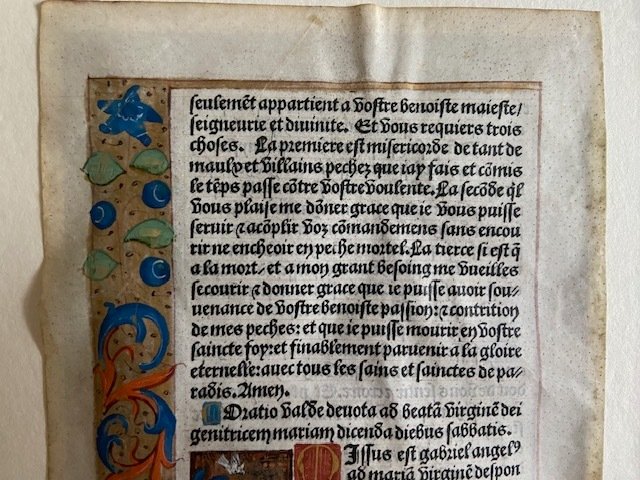 seulemēt appartient a vostre benoiste maieste/
seigneurie et diuinite. Et vous requiers trois
choses. La premiere est misericorde de tant de
maulx et villains pechez que iay fais et cōmis
le tēps passe cōtre vostre voulente. La secōde q̄l
vous plaise me dōner grace que ie vous puisse
seruir ⁊ acōplir voz cōmandemens sans encou
rir ne encheoir en peche mortel. La tierce si est q̄
a la mort, et a mon grant besoing me vueilles
secourir ⁊ donner grace que ie puisse auoir sou⸗
uenance de vostre benoiste passion: ⁊ contrition
de mes peches: et que ie puisse mourir en vostre
saincte foy: et finablement paruenir a la gloire
eternelle: auec tous les sains et sainctes de pa⸗
radis. Amen.
Oratio valde deuota ad beatā virginē dei
genitricem mariam dicenda diebus sabbatis.
Issus est gabriel angelꝰ
ad mariā virginē despon